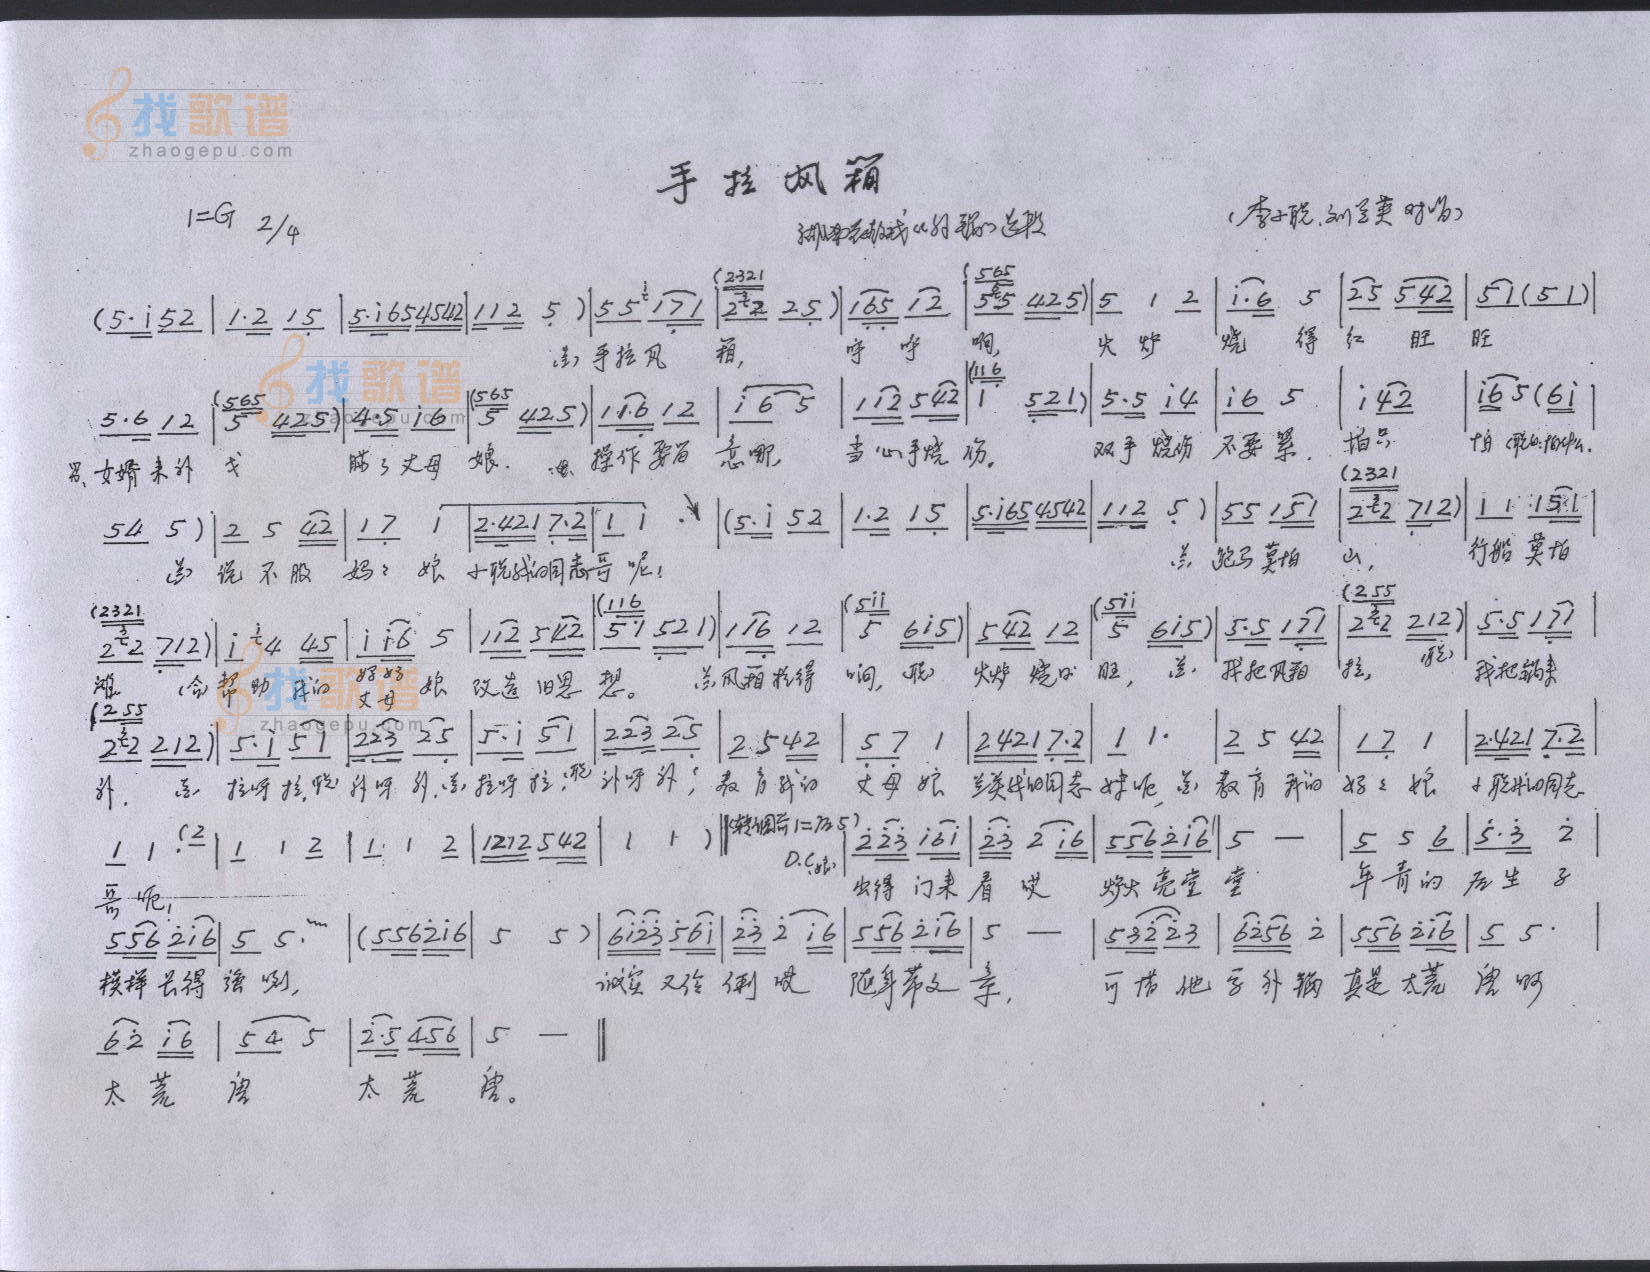 找歌谱
zhaogepu.com
手拉风箱
1=G 2/4
湖南花鼓戏《补锅》选段
(李小聪、刘兰英对唱)
(5·i 52 | 1·2 15 | 5·i65 4542 | 112 5 ) | 55 171 | 2 2 25 ) | 165 12 | 5 5 425 ) | 5 1 2 | i·6 5 | 25 5·42 | 51 (51) |
兰 手拉风 箱, 呼 呼 响, 火 炉 烧 得 红 旺 旺
找歌谱
5·6 12 | 5 425 ) | 4·5 i6 | 5 425 ) | 11·6 12 | i 6 5 | 112 542 | 1 521 ) | 5·5 i4 | i6 5 | i 42 | i65 (6i |
女婿来补 瞒了丈母 娘. 操作要留 意哪, 当心手烧 伤。 双手烧伤 不要紧, 怕只 怕
54 5 ) | 2 5 42 | 17 1 | 2·421 7·2 | 1 1 · | (5·i 52 | 1·2 15 | 5·i65 4542 | 112 5 ) | 55 151 | 2 2 712 ) | 11 151 |
兰 说 不服 妈妈 娘 小聪我的同志哥 呢! 兰 跑马莫怕 山, 行船莫怕
2 2 712 ) | i 4 45 | i i6 5 | 112 542 | 51 521 ) | 116 12 | 5 6i5 ) | 542 12 | 5 6i5 ) | 5·5 171 | 2 2 212 ) | 5·5 171 |
滩 (合) 帮助 我的 丈母 娘 改造旧思 想。 兰 风箱拉得 响, 聪 火炉烧得 旺, 兰 我把风箱 拉, 聪 我把锅来
找歌谱
zhaogepu.com
2 2 212 ) | 5·i 51 | 223 25 | 5·i 51 | 223 25 | 2 5 42 | 5 7 1 | 2421 7·2 | 1 1· | 2 5 42 | 17 1 | 2·421 7·2 |
补. 兰 拉呀拉, 聪 补呀补, 兰 拉呀拉, 聪 补呀补, 教育我的 丈母娘 兰英我的同志 妹呢, 兰 教育我的 妈妈娘 小聪我的同志
1 1 · (2 | 1 1 2 | 1· 1 2 | 1212 542 | 1 1 ) ‖ (转调前1=后5) D.C. 223 i6i | 23 2 i6 | 556 2i6 | 5 — | 5 5 6 | 5·3 2 |
哥呢! 出得门来看 哎 炉火亮堂 堂 年青的后生子
556 2i6 | 5 5· | (556 2i6 | 5 5 ) | 6i23 56i | 23 2 i6 | 556 2i6 | 5 — | 53223 | 6256 2 | 556 2i6 | 5 5· |
模样长得强咧, 诚实又伶俐 哎 随身带文章, 可惜他学补锅 真是太荒唐啊
62 i6 | 54 5 | 2·5 456 | 5 — ‖
太荒唐 太荒唐。